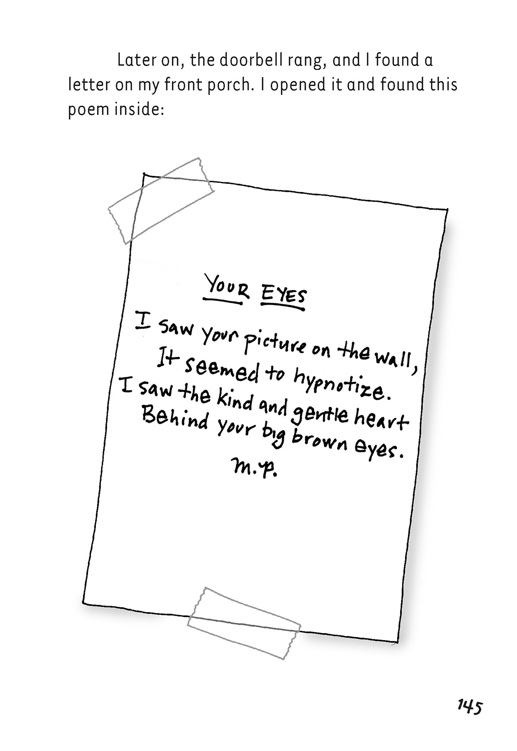 Later on, the doorbell rang, and I found a
letter on my front porch. I opened it and found this
poem inside:
YOUR EYES
I saw your picture on the wall,
It seemed to hypnotize.
I saw the kind and gentle heart
Behind your big brown eyes.
M.P.
145